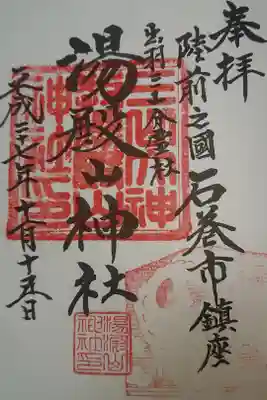 奉拝
陸前之國 石巻市鎮座
出羽三山分霊社
湯殿山神社
平成二十七年十一月十五日
湯殿山神社印